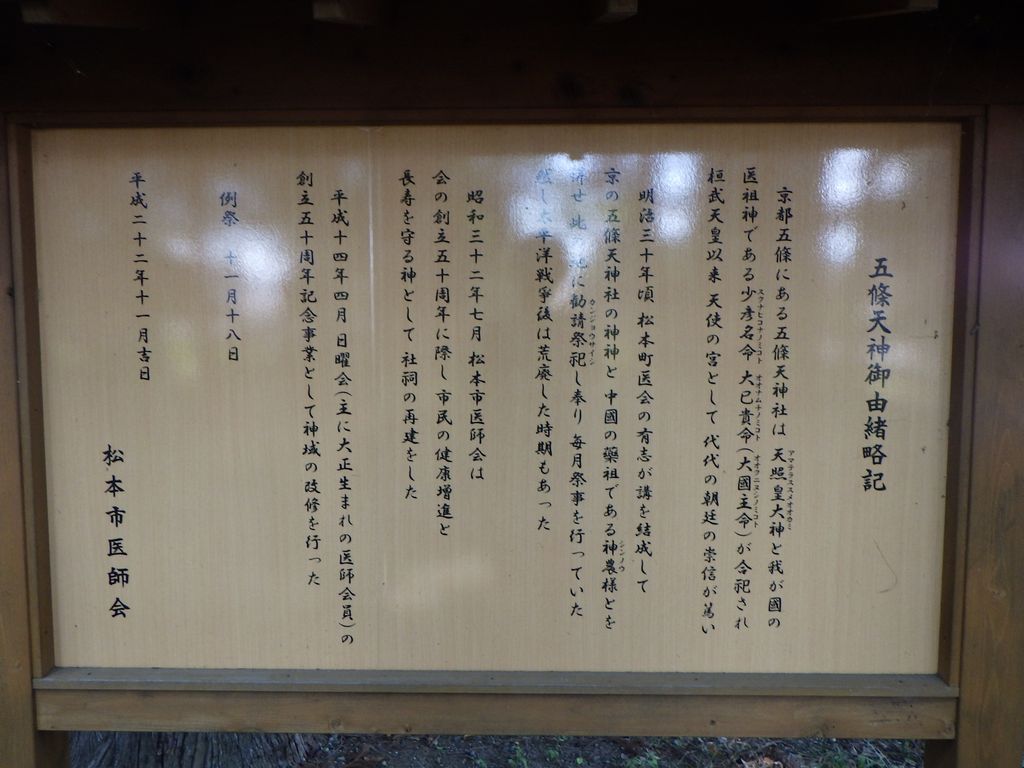 五條天神御由緒略記
京都五條にある五條天神社は 天照皇大神と我が國の
アマテラススメオオカミ
医祖神である少彦名命 大已貴命(大國主命)が合祀され
スクナヒコナノミコト オオナムチノミコト オオクニヌシノミコト
桓武天皇以来 天使の宮として 代代の朝廷の崇信が篤い
明治三十年頃 松本町医会の有志が講を結成して
京の五條天神社の神神と 中國の藥祖である神農様とを
シンノウ
併せ 此 地に勧請祭祀し奉り 毎月祭事を行っていた
カンジョウサイシ
然し太平洋戦争後は荒廃した時期もあった
昭和三十二年七月 松本市医師会は
会の創立五十周年に際し 市民の健康増進と
長寿を守る神として 社祠の再建をした
平成十四年四月 日曜会(主に大正生まれの医師会員)の
創立五十周年記念事業として神域の改修を行った
例祭 十一月十八日
平成二十二年十一月吉日
松本市医師会